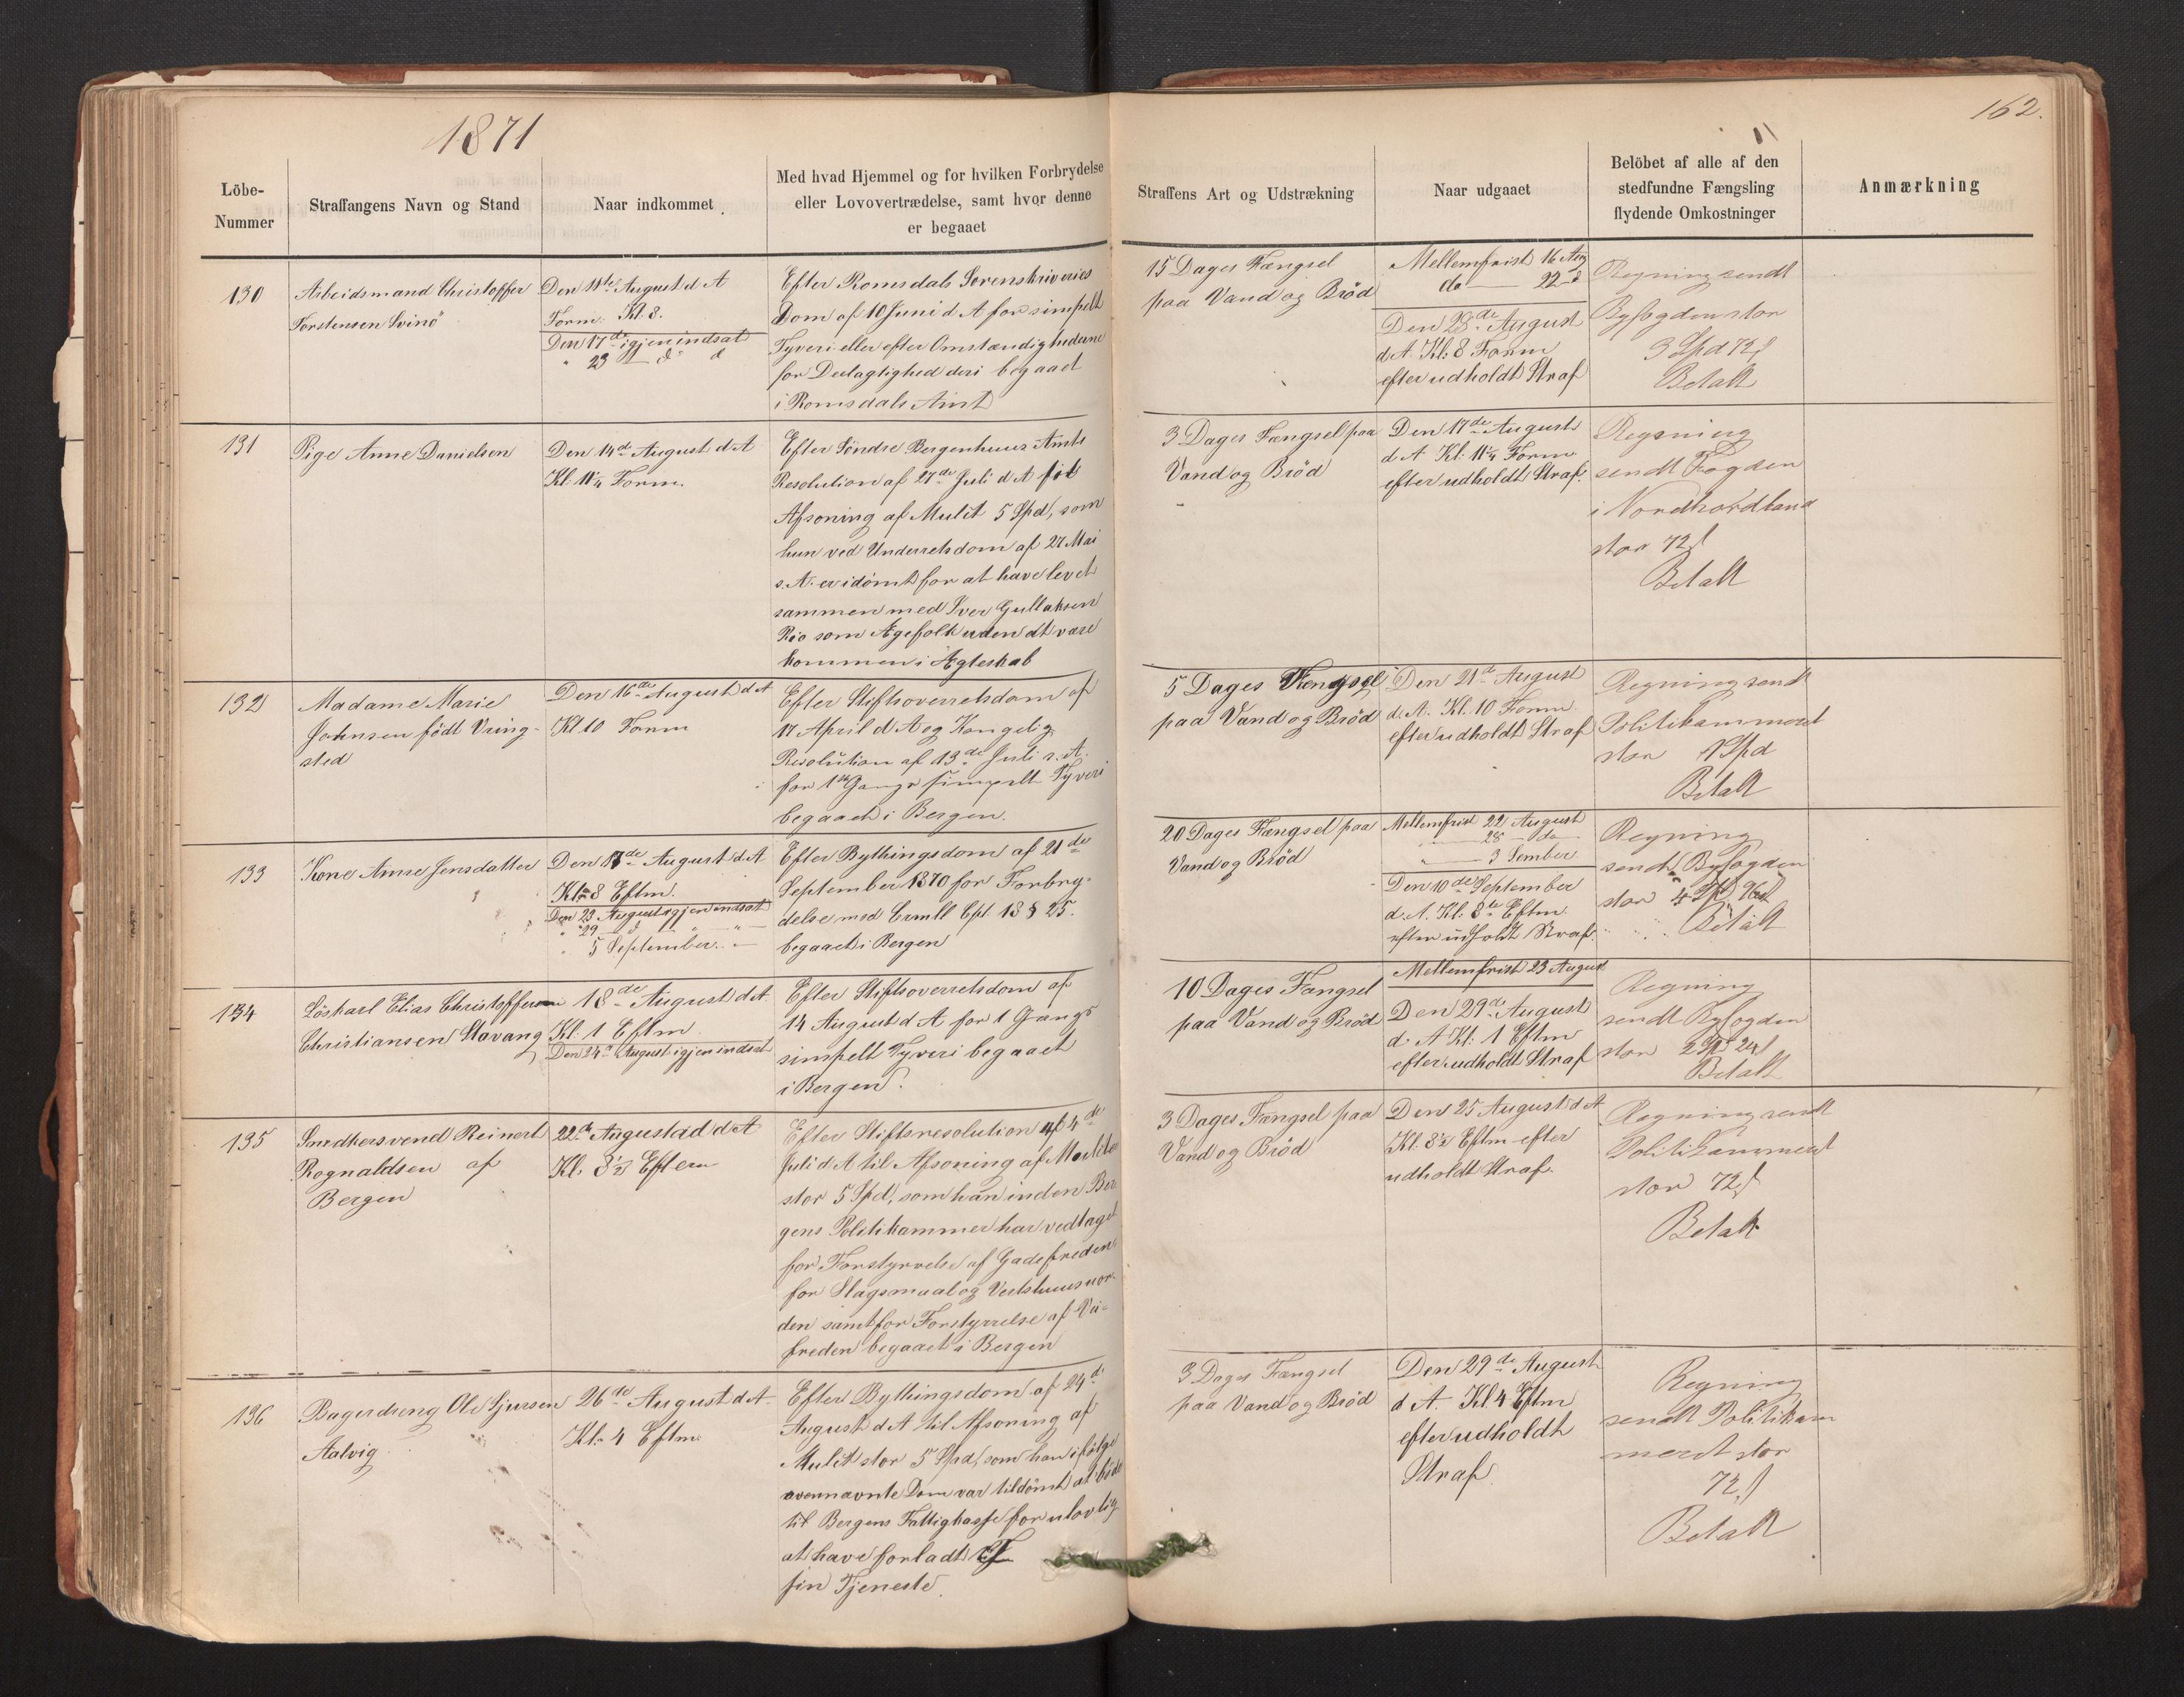 1871
162.
Löbe-
Nummer
Straffangens Navn og Stand
Naar indkommet
Med hvad Hjemmel og for hvilken Forbrydelse
eller Lovovertrædelse, samt hvor denne
er begaaet
Straffens Art og Udstrækning
Naar udgaaet
Belöbet af alle af den
stedfundne Fængsling
flydende Omkostninger
Anmærkning
130
Arbeidsmand Christoffer
Torstensen Svinö
Den 11te August d A
Form. Kl. 8.
Den 17de igjen indsat
" 23 — d° d
Efter Romsdals Sorenskriveries
Dom af 10 Juni d A for simpelt
Tyveri eller efter Omstændighederne
for Deelagtighed deri begaaet
i Romsdals Amt
15 Dages Fængsel
paa Vand og Bröd
Mellemfrist 16 Aug
do — 22 d
Den 28de August
d.A. Kl. 8 Form
efter udholdt Straf
Regning sendt
Byfogden stor
3 Spd 72 s
Betalt
131
Pige Anne Danielsen
Den 14de August d A
Kl. 11¼ Form.
Efter Söndre Bergenhuus Amts
Resolution af 27de Juli d A til
Afsoning af Mulct 5 Spd, som
hun ved Underretsdom af 27 Mai
s. A. er idömt for at have levet
sammen med Iver Gullaksen
Rio som Ægefolk uden at være
kommen i Ægteskab
3 Dages Fængsel paa
Vand og Bröd
Den 17de August
d A Kl. 11¼ Form
efter udholdt Straf.
Regning
sendt Fogden
i Nordhordland
stor 72 s
Betalt
132
Madame Marie
Johnsen födt Vring-
sted
Den 16de August d A
Kl 10 Form
Efter Stiftsoverretsdom af
17 April d A og Kongelig
Resolution af 13de Juli s. A.
for 1ste Gangs simpelt Tyveri
begaaet i Bergen.
5 Dages Fængsel
paa Vand og Bröd
Den 21de August
d. A. Kl. 10 Form.
efter udholdt Straf
Regning sendt
Politikammeret
stor 1 Spd
Betalt
133
Kone Anne Jensdatter
Den 17de August d A
Kl. 8 Eftm.
Den 23 August igjen indsat
" 29 d " "
" 5 September "
Efter Bythingsdom af 21de
September 1870 for Forbry-
delse mod Crmll Cpt. 18 § 25.
begaaet i Bergen
20 Dages Fængsel paa
Vand og Bröd
Mellemfrist 22 August
28 do
3 Sember
Den 10de September
d. A. Kl. 8te Eftm
efter udholdt Straf.
Regning
sendt Byfogden
stor 4 Spd 96 s
Betalt
134
Löskarl Elias Christoffersen
Christiansen Stavang
18de August d A
Kl. 1 Eftm.
Den 24de August igjen indsat
Efter Stiftsoverretsdom af
14 August d A for 1 Gangs
simpelt Tyveri begaaet
i Bergen.
10 Dages Fængsel
paa Vand og Bröd
Mellemfrist 23 August
Den 29de August
d. A Kl: 1 Eftm
efter udholdt Straf
Regning
sendt Byfogden
stor 2 Spd 24 s
Betalt
135
Snedkersvend Reinert
Rognaldsen af
Bergen
22de August d A
Kl. 8½ Eftem
Efter Stiftsresolution af 4de
Juli d A til Afsoning af Mulct
stor 5 Spd, som han inden Ber
gens Politikammer har vedtaget
for Forstyrrelse af Gadefreden
for Slagsmaal og Vertshuusuor-
den samt for Forstyrrelse af
freden begaaet i Bergen
3 Dages Fængsel paa
Vand og Bröd
Den 25 August d A
Kl. 8½ Eftm efter
udholdt Straf.
Regning sendt
Politikammeret
stor 72 s
Betalt
136
Bagerdreng Ole Sjursen
Aalvig
26de August d A
Kl. 4 Eftm
Efter Bythingsdom af 24de
August d A til Afsoning af
Mulct stor 5 Spd, som han ifölge
ovennævnte Dom var tildömt at böde
til Bergens Fattigkasse for ulovlig
at have forladt
sin Tjeneste.
3 Dages Fængsel
paa Vand og Bröd
Den 29de August
d A. Kl 4 Eftm
efter udholdt
Straf
Regning
sendt Politikam
meret stor
72 s
Betalt